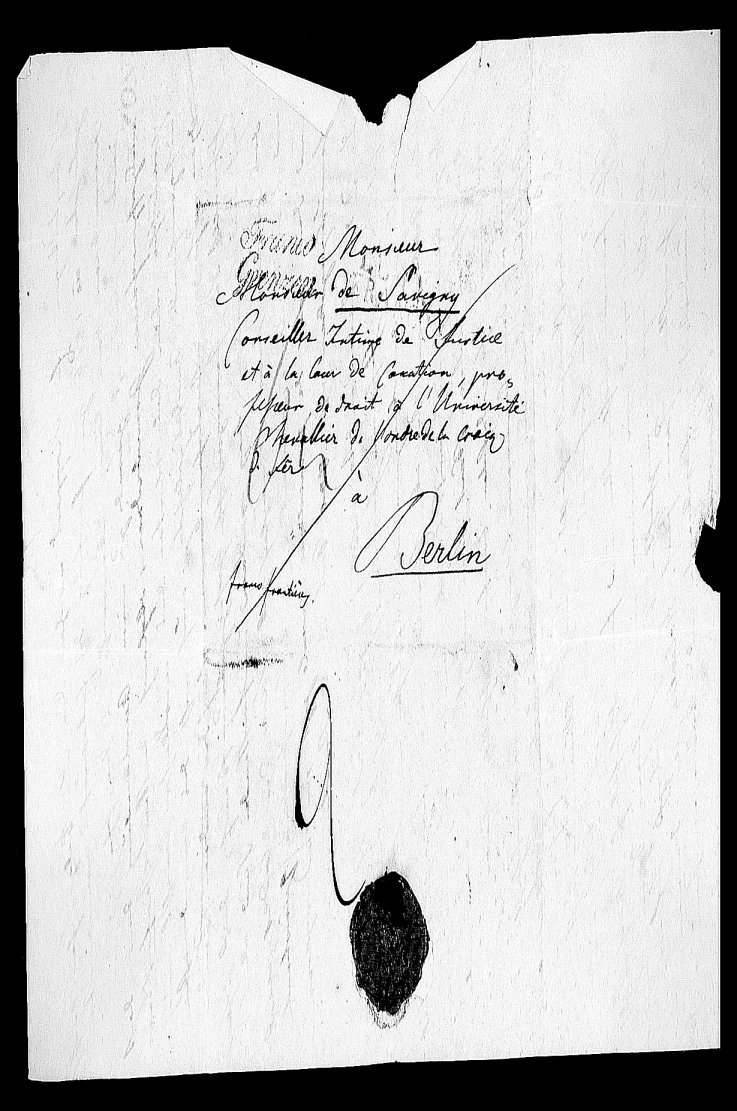 Franco Monsieur
Grenze
Monsieur de Savigny
Conseiller Intime de Justice
et à la Cour de Cassation, pro-
fesseur de droit à l'Université
Chevallier de l'ordre de la Croix
d. fer
à
Berlin
franco frontières.